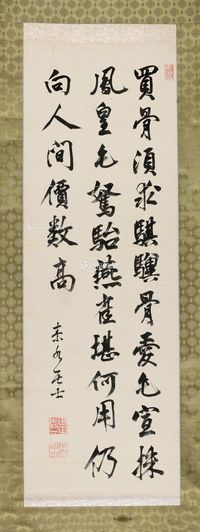 買骨須求騏驥骨愛毛宜採
鳳皇毛駑駘燕雀堪何用仍
向人間價數高
居士